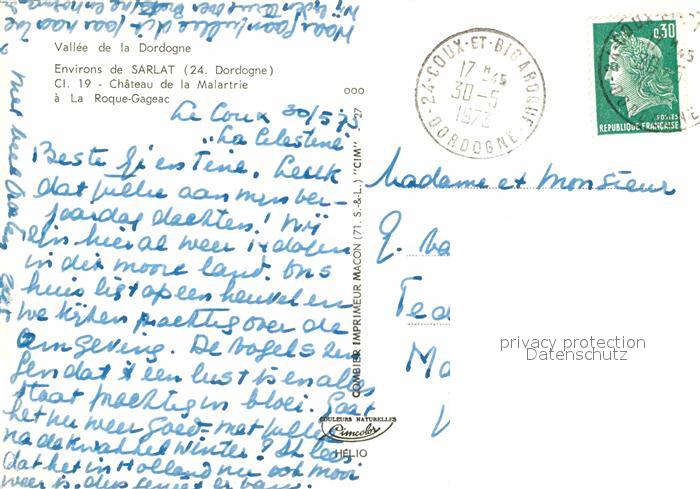 Vallée de la Dordogne
Environs de SARLAT (24. Dordogne)
Cl. 19 - Château de la Malartrie
à La Roque-Gageac
000
27
COMBIER IMPRIMEUR MACON (71. S.-&-L.) "CIM"
COULEURS NATURELLES
Cimcolor
HÉLIO
24-COUX-ET-BIGAROQUE
17 H 45
30-5
1973
DORDOGNE
0,30
POSTES
REPUBLIQUE FRANÇAISE
Le Coux 30/5 73
"La Celestine"
Beste Q. en Tine. Leuk
dat jullie aan mijn ver-
jaardag dachten! Wij
zijn hier al weer 14 dagen
in dit mooie land. Ons
huis ligt op een heuvel en
we kijken prachtig over de
omgeving. De vogels zin
gen dat 't een lust is en alles
staat prachtig in bloei. Gaat
het nu weer goed met jullie
na de kwakkel winter? Ik lees
dat het in Holland nu ook mooi
weer is, dus geniet er van.
Madame et Monsieur
Q. va
privacy protection
Datenschutz